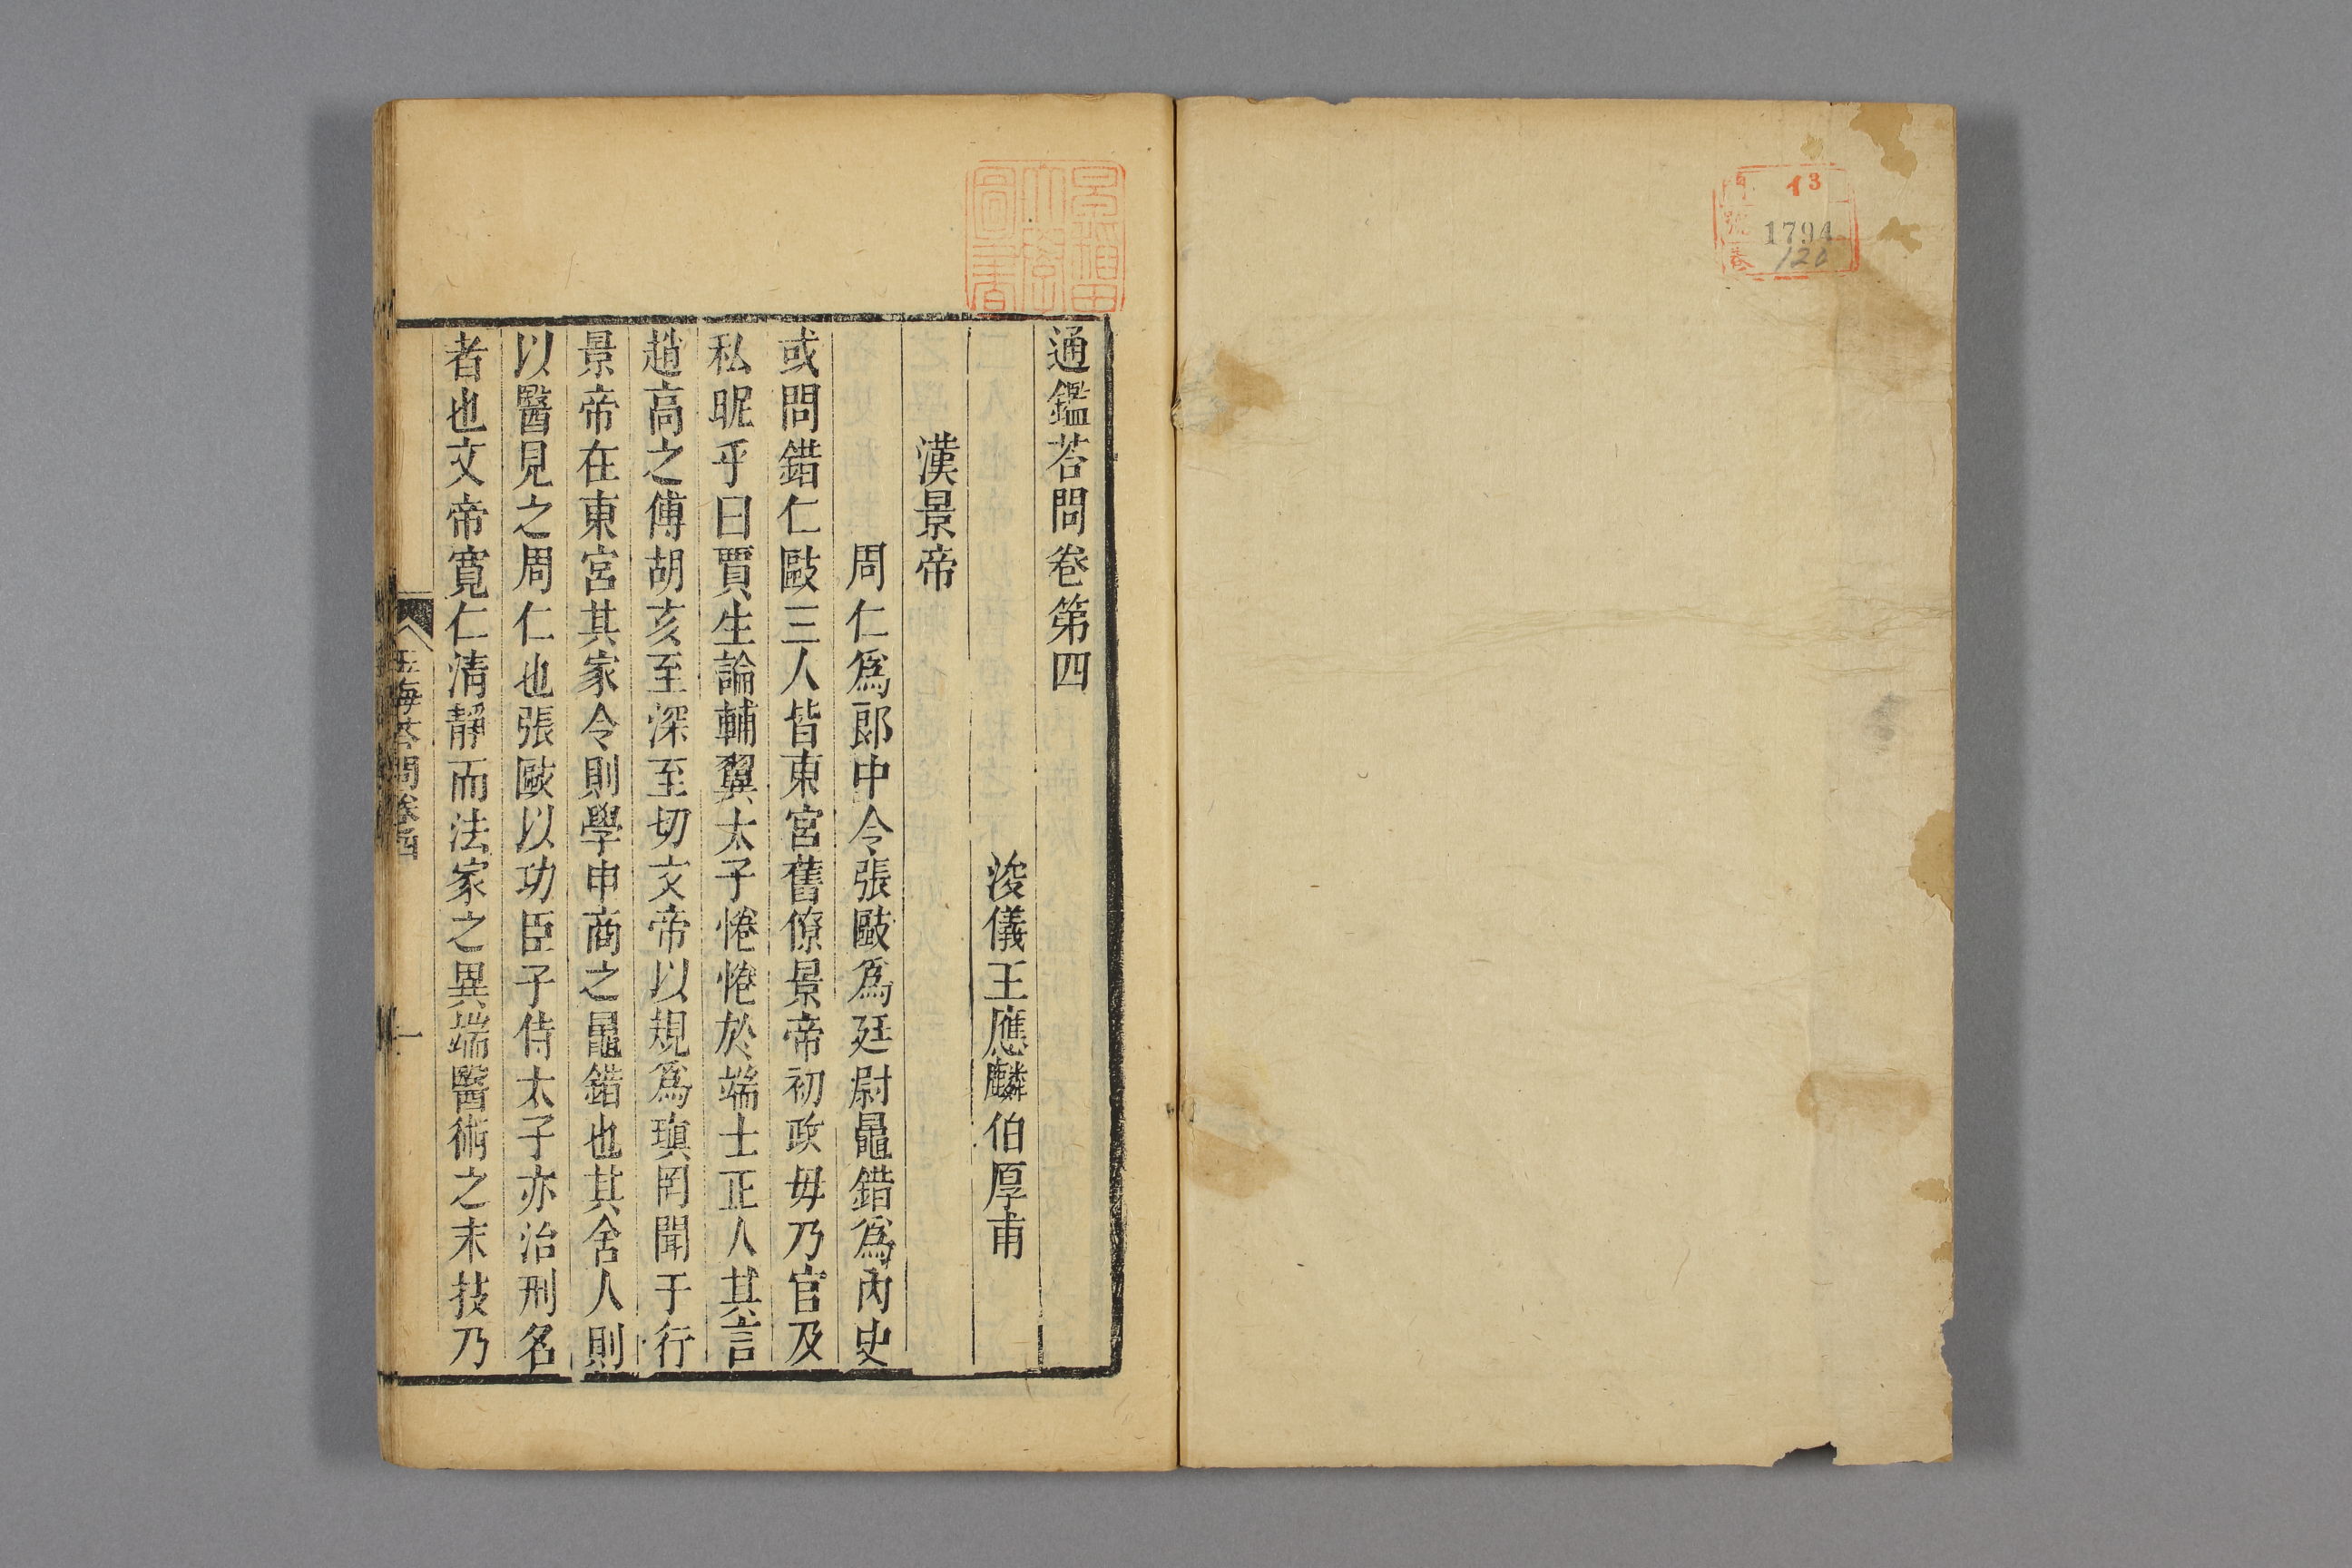 13
1794
120
早稲田
大學
圖書
通鑑荅問卷第四
浚儀王應麟伯厚甫
漢景帝
周仁爲郎中令張敺爲廷尉鼂錯爲內史
或問錯仁敺三人皆東宮舊僚景帝初政毋乃官及
私昵乎曰賈生論輔翼太子惓惓於端士正人其言
趙高之傅胡亥至深至切文帝以規爲瑱罔聞于行
景帝在東宮其家令則學申商之鼂錯也其舍人則
以醫見之周仁也張敺以功臣子侍太子亦治刑名
者也文帝寬仁清靜而法家之異端醫術之末技乃
玉海荅問卷四
一